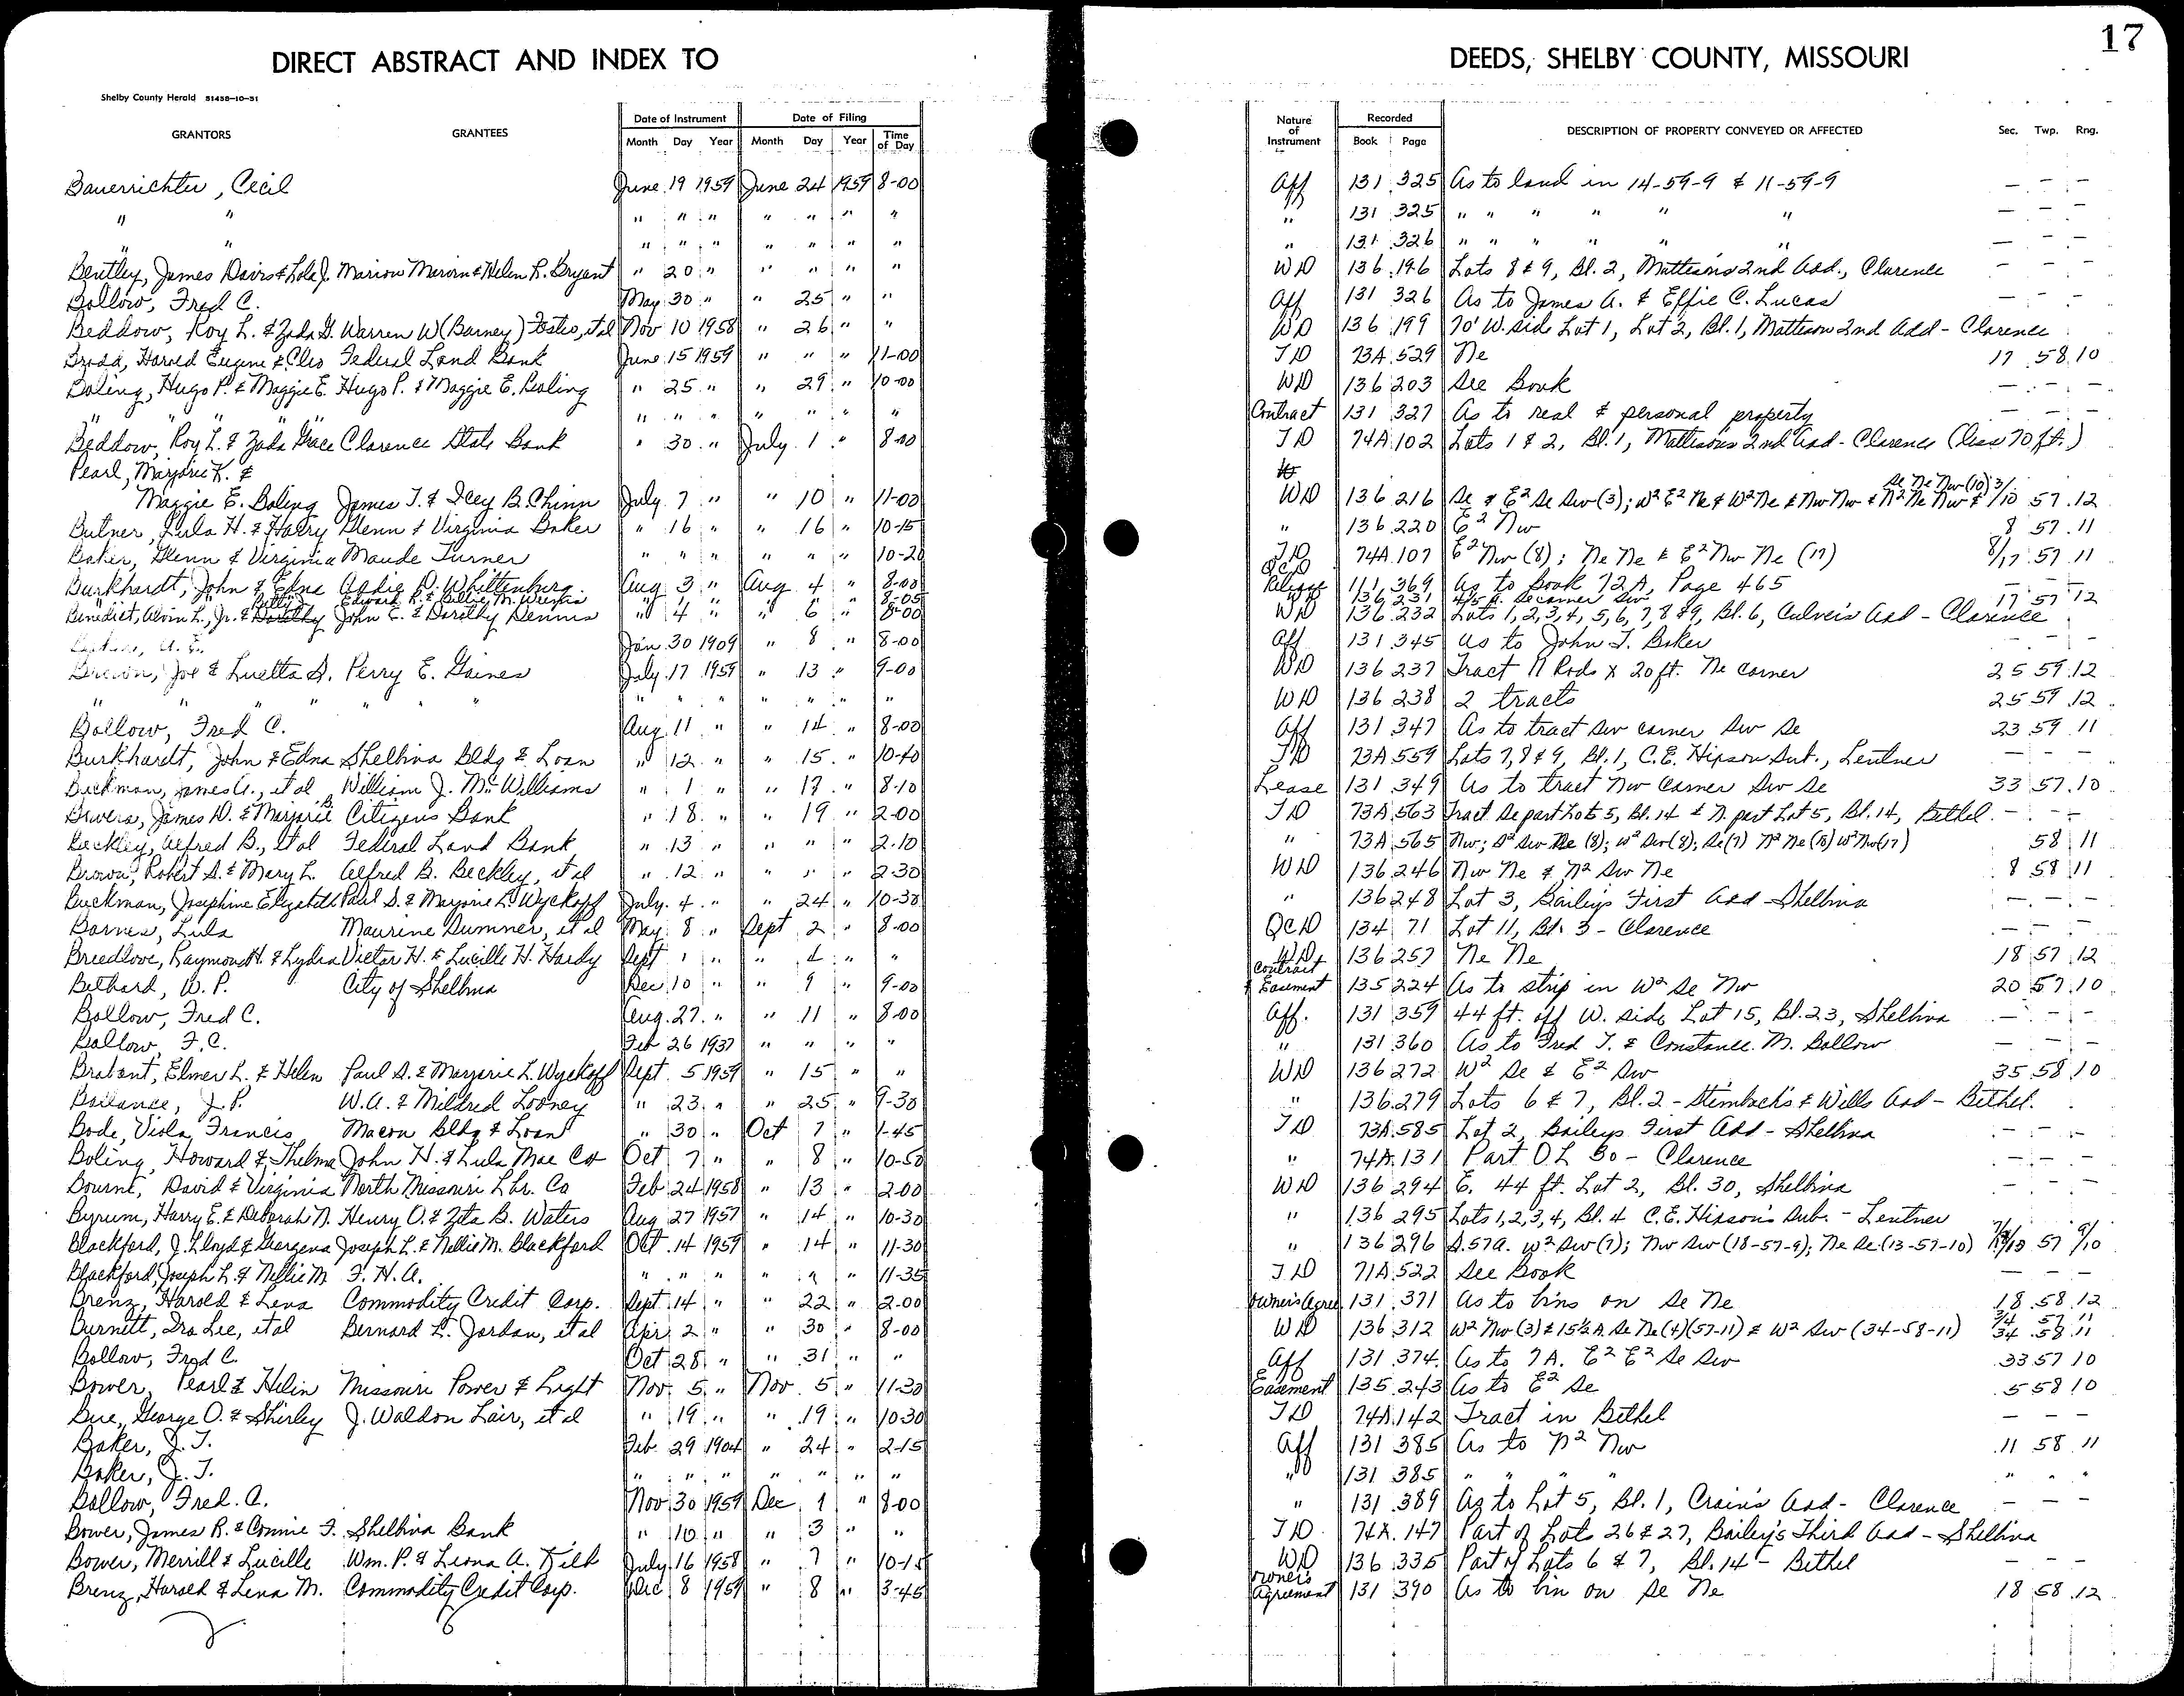 17
DIRECT ABSTRACT AND INDEX TO DEEDS, SHELBY COUNTY, MISSOURI
Shelby County Herald 51458-10-51
GRANTORS GRANTEES Date of Instrument Date of Filing Nature of Instrument Recorded DESCRIPTION OF PROPERTY CONVEYED OR AFFECTED Sec. Twp. Rng.
Month Day Year Month Day Year Time of Day Book Page
Bauerrichter, Cecil June 19 1959 June 24 1959 8-00 Aff 131 325 As to land in 14-59-9 & 11-59-9 — — —
" " " " " " " " " " 131 325 " " " " " " — — —
" " " " " " " " " " 131 326 " " " " " " — — —
Bentley, James Davis & Lola J. Marion Marvin & Helen R. Bryant " 20 " " " " " WD 136 196 Lots 8 & 9, Bl. 2, Matteson's 2nd Add., Clarence
Bollow, Fred C. May 30 " " 25 " " Aff 131 326 As to James A. & Effie C. Lucas — — —
Beddow, Roy L. & Zada G. Warren W (Barney) Foster, et al Nov 10 1958 " 26 " " WD 136 199 70' W. side Lot 1, Lot 2, Bl. 1, Matteson 2nd Add - Clarence
Harold Eugene & Cleo Federal Land Bank June 15 1959 " " " 11-00 TD 73A 529 Ne 17 58 10
Boling, Hugo P. & Maggie E. Hugo P. & Maggie E. Boling " 25 " " 29 " 10-00 WD 136 203 See Book — — —
" " " " " " " " " " " Contract 131 327 As to real & personal property — — —
Beddow, Roy L. & Zada Grace Clarence State Bank " 30 " July 1 " 8-00 TD 74A 102 Lots 1 & 2, Bl. 1, Matteson's 2nd Add - Clarence (less 70 ft.)
Pearl, Marjorie K. &
Se Ne Nw (10)
Maggie E. Boling James T. & Icey B. Chinn July 7 " " 10 " 11-00 WD 136 216 Se & E² Se Sw (3); W² E² Ne & W² Ne & Nw Nw & N² Ne Nw & 3/10 57 12
Butner, Lula H. & Harry Glenn & Virginia Baker " 16 " " 16 " 10-15 " 136 220 E² Nw 8 57 11
Baker, Glenn & Virginia Maude Turner " " " " " " 10-20 TD 74A 107 E² Nw (8); Ne Ne & E² Nw Ne (17) 8/17 57 11
Burkhardt, John & Edna Addie D. Whittenburg Aug 3 " Aug 4 " 8-00 QCD Release 111 369 As to Book 72A, Page 465 — — —
" " Edward R. & Billie M. " " " " " " 8-05 136 231 Se corner Sw 17 57 12
Benedict, Alvin L., Jr. & Betty J. John E. & Dorothy Dennis " 4 " " 6 " 8-00 WD 136 232 Lots 1,2,3,4,5,6,7,8 & 9, Bl. 6, Culver's Add - Clarence
Jan 30 1909 " 8 " 8-00 Aff 131 345 As to John T. Baker — — —
Brown, Joe & Luetta S. Perry E. Gaines July 17 1959 " 13 " 9-00 WD 136 237 Tract 11 Rods x 20 ft. Ne corner 25 59 12
" " " " " " " " " " " " " WD 136 238 2 tracts 25 59 12
Bollow, Fred C. Aug 11 " " 14 " 8-00 Aff 131 347 As to tract Sw corner Sw Se 23 59 11
Burkhardt, John & Edna Shelbina Bldg & Loan " 12 " " 15 " 10-40 TD 73A 559 Lots 7, 8 & 9, Bl. 1, C.E. Hixson Sub., Lentner — — —
Buckman, James A., et al William J. McWilliams " 1 " " 17 " 8-10 Lease 131 349 As to tract Nw Corner Sw Se 33 57 10
Bowers, James D. & Marjorie B. Citizens Bank " 18 " " 19 " 2-00 TD 73A 563 Tract Se part Lot 5, Bl. 14 & N. part Lot 5, Bl. 14, Bethel — — —
Beckley, Alfred B., et al Federal Land Bank " 13 " " " " 2-10 " 73A 565 Nw; S² Sw Ne (8); W² Sw (8); Se (7) N² Ne (18) W² Nw (17) 58 11
Brown, Robert S. & Mary L. Alfred B. Beckley, et al " 12 " " " " 2-30 WD 136 246 Nw Ne & N² Sw Ne 8 58 11
Buckman, Josephine Elizabeth Paul S. & Marjorie L. Wyckoff July 4 " " 24 " 10-30 " 136 248 Lot 3, Bailey's First Add - Shelbina — — —
Barnes, Lula Maurine Sumner, et al May 8 " Sept 2 " 8-00 QCD 134 71 Lot 11, Bl. 3 - Clarence — — —
Breedlove, Raymond H. & Lydia Victor H. & Lucille H. Hardy Sept 1 " " 4 " " WD 136 257 Ne Ne 18 57 12
Bethard, W. P. City of Shelbina Dec 10 " " 9 " 9-00 Contract & Easement 135 224 As to strip in W² Se Nw 20 57 10
Bollow, Fred C. Aug. 27 " " 11 " 8-00 Aff. 131 359 44 ft. off W. side Lot 15, Bl. 23, Shelbina — — —
Bollow, F.C. Feb 26 1937 " " " " " 131 360 As to Fred T. & Constance M. Bollow — — —
Brabant, Elmer L. & Helen Paul S. & Marjorie L. Wyckoff Sept. 5 1959 " 15 " " WD 136 272 W² Se & E² Sw 35 58 10
Bailance, J. P. W. A. & Mildred Looney " 23 " " 25 " 9-30 " 136 279 Lots 6 & 7, Bl. 2 - Steinbach's & Wills Add - Bethel.
Bode, Viola Francis Macon Bldg & Loan " 30 " Oct 7 " 1-45 TD 73A 585 Lot 2, Baileys First Add - Shelbina — — —
Boling, Howard & Thelma John H. & Lula Mae Cox Oct 7 " " 8 " 10-50 " 74A 131 Part OL 30 - Clarence — — —
Bourne, David & Virginia North Missouri Lbr. Co Feb 24 1958 " 13 " 2-00 WD 136 294 E. 44 ft. Lot 2, Bl. 30, Shelbina — — —
Byrum, Harry E. & Deborah N. Henry O. & Zita B. Waters Aug 27 1957 " 14 " 10-30 " 136 295 Lots 1,2,3,4, Bl. 4 C.E. Hixson's Sub. - Lentner
Blackford, J. Lloyd & Georgena Joseph L. & Nellie M. Blackford Oct. 14 1959 " 14 " 11-30 " 136 296 S. 57A. W² Sw (7); Nw Sw (18-57-9); Ne Se (13-57-10) 57 9/10
Blackford, Joseph L. & Nellie M F. H. A. " " " " " " 11-35 TD 71A 522 See Book — — —
Brenz, Harold & Lena Commodity Credit Corp. Sept. 14 " " 22 " 2-00 Owner's Agree 131 371 As to bins on Se Ne 18 58 12
Burnett, Ira Lee, et al Bernard L. Jordan, et al Apr. 2 " " 30 " 8-00 WD 136 312 W² Nw (3) & 15½ A. Se Ne (4) (57-11) & W² Sw (34-58-11) 3/4 57 11 34 58 11
Bollow, Fred C. Oct 28 " " 31 " " Aff 131 374 As to 7A. E² E² Se Sw 33 57 10
Bower, Pearl & Helen Missouri Power & Light Nov. 5 " Nov. 5 " 11-30 Easement 135 243 As to E² Se 5 58 10
Bue, George O. & Shirley J. Waldon Lair, et al " 19 " " 19 " 10-30 TD 74A 142 Tract in Bethel — — —
Baker, J. T. Feb. 29 1904 " 24 " 2-15 Aff 131 385 As to N² Nw 11 58 11
Baker, J. T. " " " " " " " " 131 385 " " " " " " "
Bollow, Fred. A. Nov 30 1959 Dec 1 " 8-00 " 131 389 As to Lot 5, Bl. 1, Crain's Add - Clarence — — —
Bower, James R. & Connie F. Shelbina Bank " 10 " " 3 " " TD 74A 147 Part of Lot 26 & 27, Bailey's Third Add - Shelbina
Bower, Merrill & Lucille Wm. P. & Leona A. July 16 1958 " 7 " 10-15 WD 136 335 Part of Lots 6 & 7, Bl. 14 - Bethel — — —
Brenz, Harold & Lena M. Commodity Credit Corp. Dec 8 1959 " 8 " 3-45 Owner's Agreement 131 390 As to bin on Se Ne 18 58 12